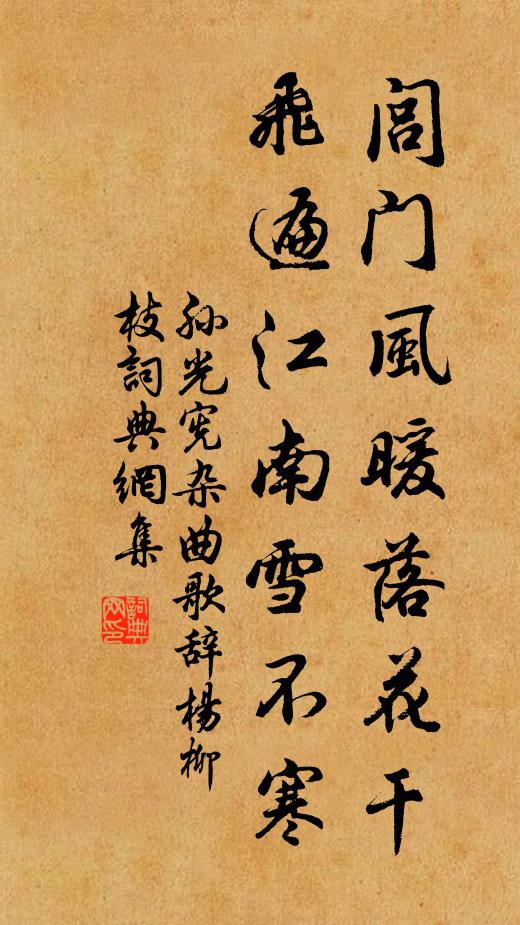 閶门風暖落花干
飛遍江南雪不寒
孙光宪杂曲歌辞楊柳
枝詞典網集
詞典网印